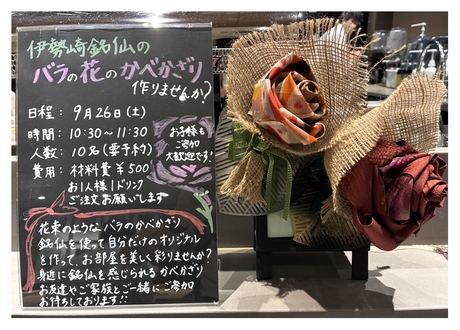 伊勢崎銘仙の
バラの花のかべかざり
作りませんか?
日程：9月26日(土)
時間：10:30～11:30
人数：10名(要予約)
費用：材料費¥500
お1人様1ドリンク
ご注文お願いします
お子様も
ご参加
大歓迎です!
花束のようなバラのかべかざり
銘仙を使って自分だけのオリジナル
を作って、お部屋を美しく彩りませんか?
身近に銘仙を感じられるかべかざり
お友達やご家族とご一緒にご参加
お待ちしております!!